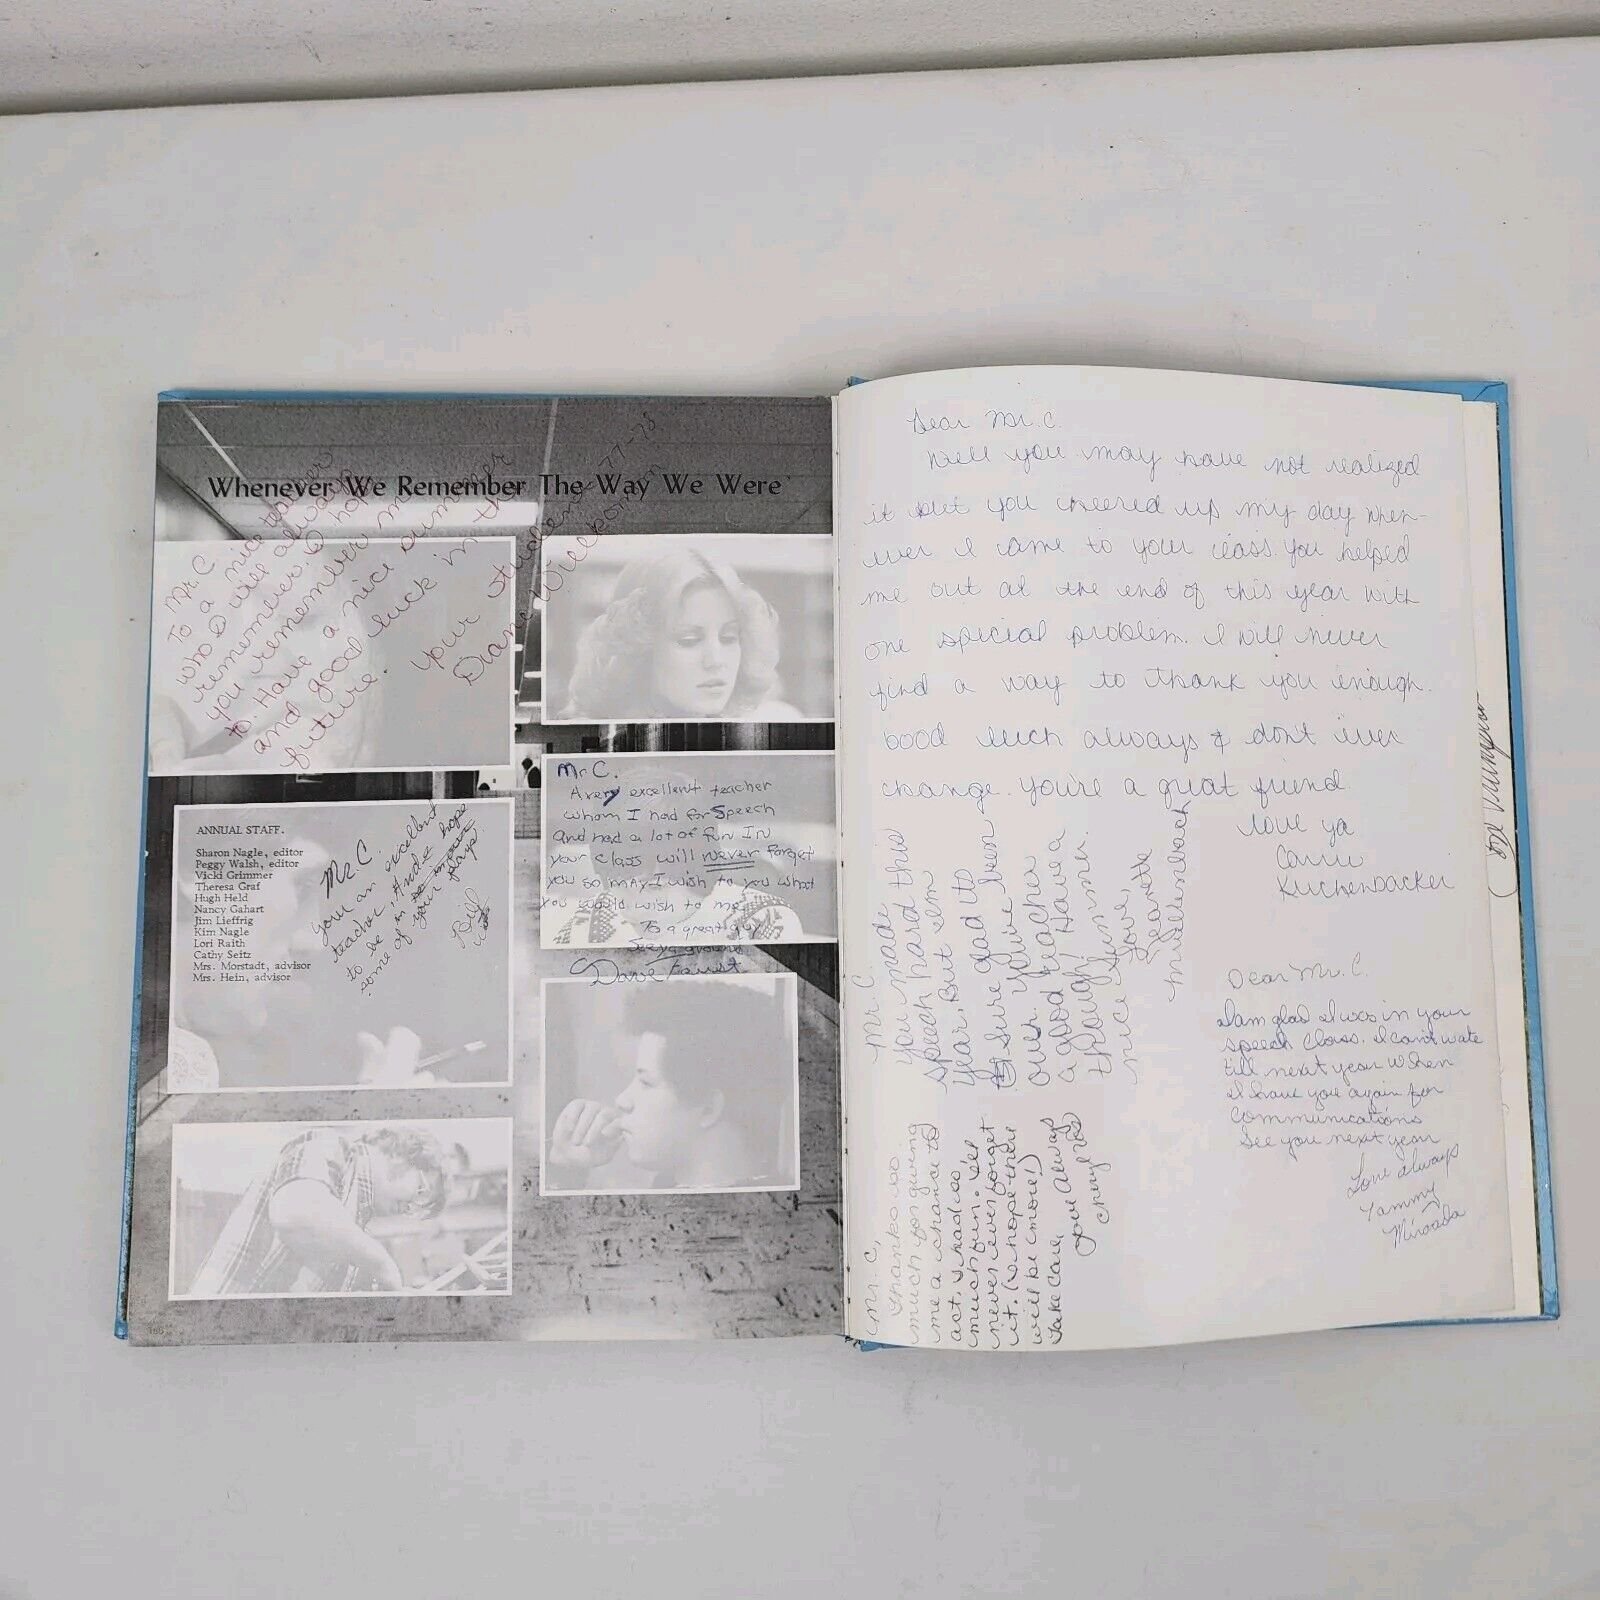 Whenever We Remember The Way We Were
Mr. C
To a nice teacher
who I will always
remember. I hope
you remember me
to. Have a nice summer
and good luck in the
future.
your student 77-78
Diane
ANNUAL STAFF.
Sharon Nagle, editor
Peggy Walsh, editor
Vicki Grimmer
Theresa Graf
Hugh Held
Nancy Gahart
Jim Lieffrig
Kim Nagle
Lori Raith
Cathy Seitz
Mrs. Morstadt, advisor
Mrs. Hein, advisor
Mr. C
your an excellent
teacher, And I hope
to be in
some of your plays.
Bill
Mr C.
A very excellent teacher
whom I had for Speech
and had a lot of fun In
your class will never forget
you so may I wish to you what
you would wish to me
To a great guy
See ya around
Dave Faust
Dear Mr. C.
Well you may have not realized
it but you cheered up my day when-
ever I came to your class. You helped
me out at the end of this year with
one special problem. I will never
find a way to thank you enough.
Good luck always & dont ever
change. You're a great friend.
love ya
Carrie
Kuchenbacker
Mr. C.
You made this
speech hard this
year. But I'm
sure glad to
our. You've been
a good teacher
though! Have a
nice summer.
Love,
Jeanette
Muellenbach
Dear Mr. C.
I am glad I was in your
speech class. I can't wate
till next year when
I have you again for
communications
See you next year
Love always
Tammy
Mr. C,
Thanks so
much for giving
me a chance to
act, I had so
much fun. I'll
never ever forget
it. (I hope there
will be more!)
Take Care,
Love Always
Cheryl